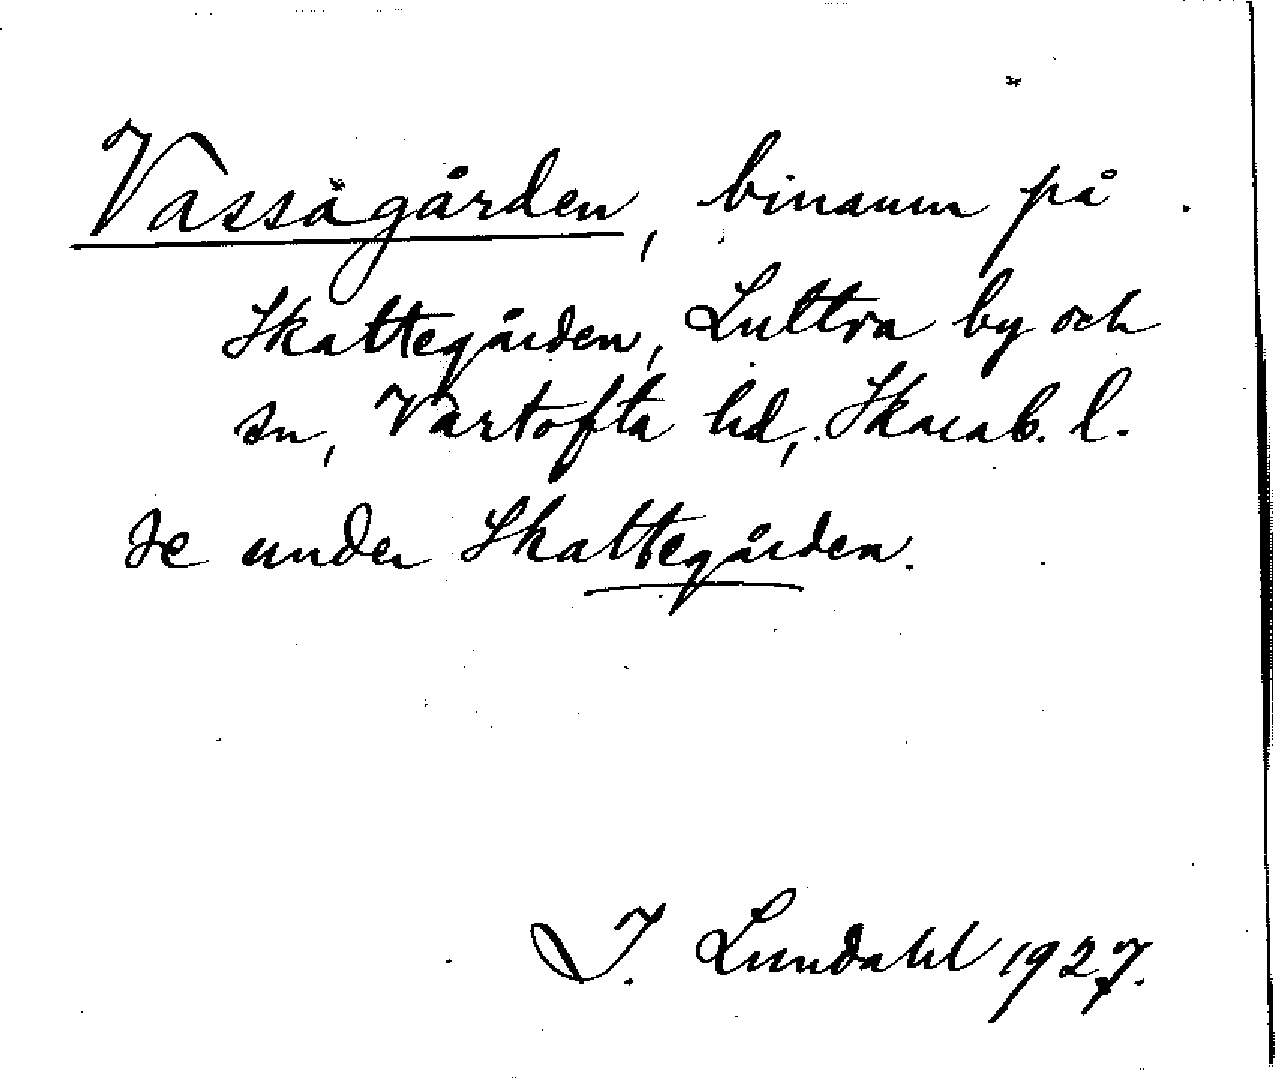 Vassägården, binamn på
Skattegården, Luttra by och
sn, Vartofta hd, Skarab. l.
Se under Skattegården.
I. Lundahl 1927.